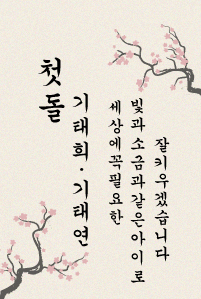 첫돌
기태희·기태연
세상에꼭필요한
빛과소금과같은아이로
잘키우겠습니다